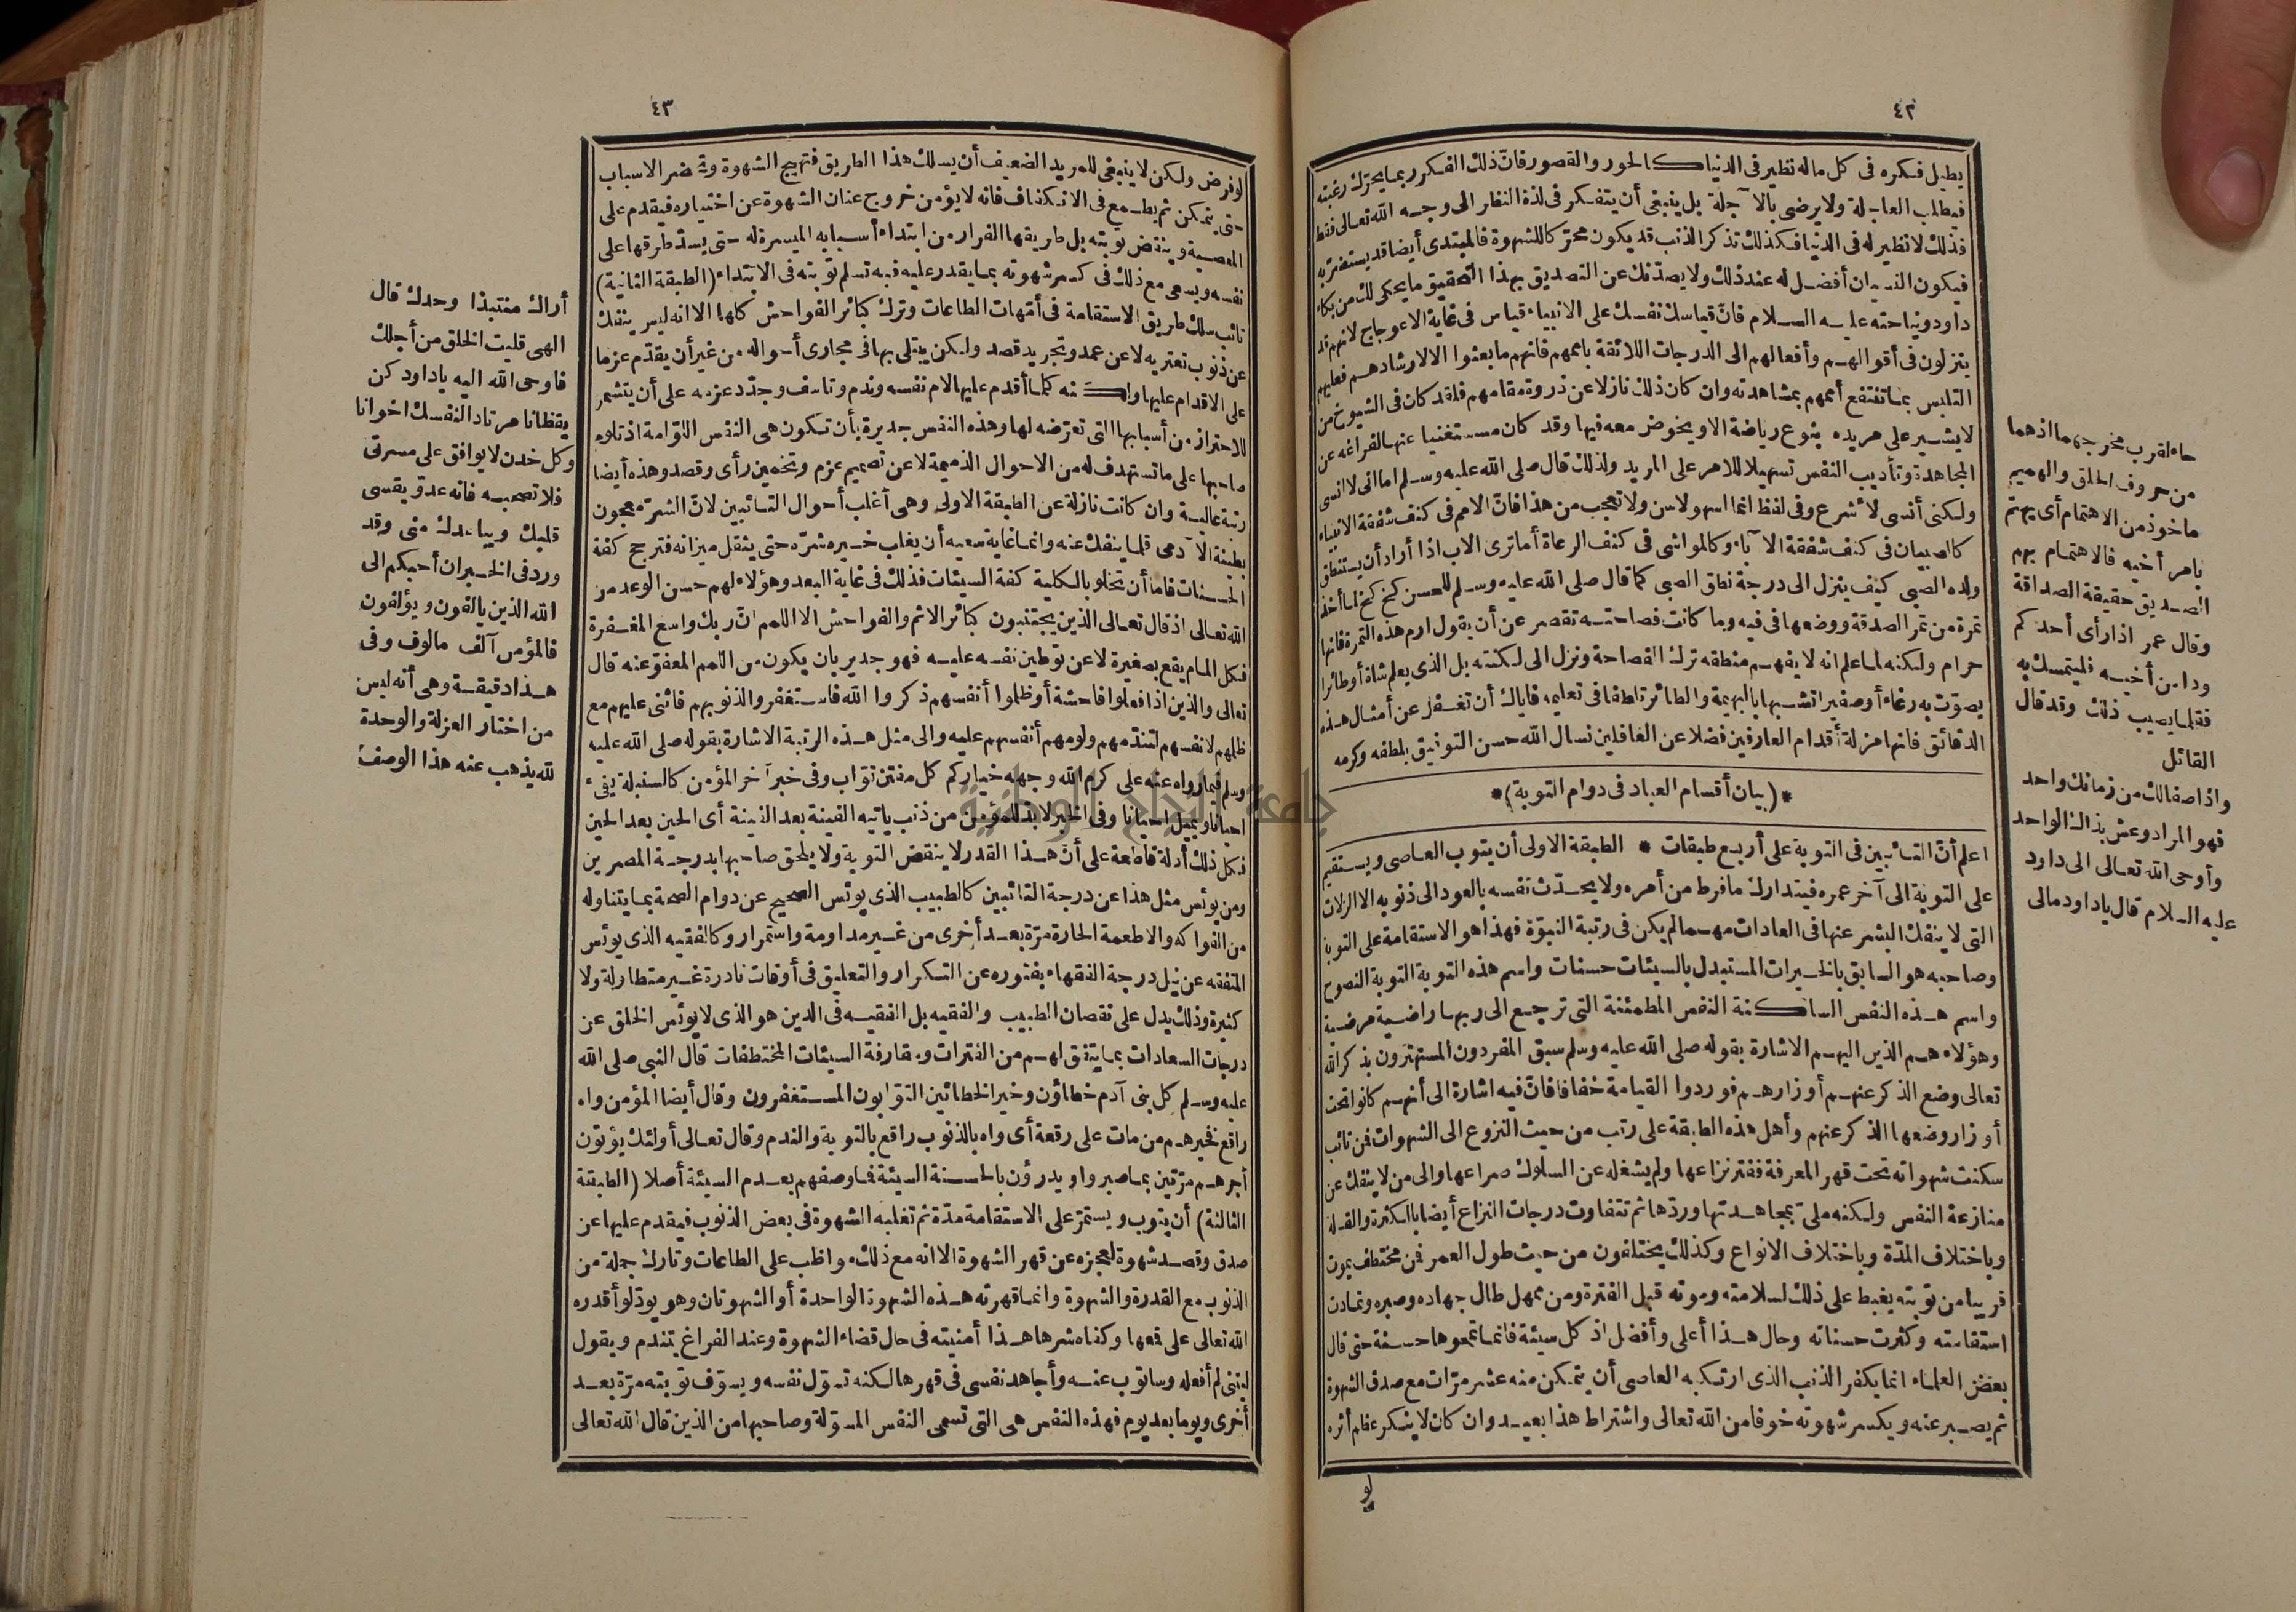 ٤٢
يطيل فكره في كل ماله نظير في الدنيا كالحور والقصور فان ذلك الفكر ربما يحرّك رغبته
فيطلب العاجلة ولا يرضى بالآجلة بل ينبغي أن يتفكر في لذة النظر الى وجه الله تعالى فقط
فذلك لا نظير له في الدنيا فكذلك تذكر الذنب قد يكون محرّكا للشهوة فالمبتدى أيضا قد يستضرّ به
فيكون النسيان أفضل له عند ذلك ولا يصدّنك عن التصديق بهذا التحقيق ما يحكى لك من بكاء
داود ونياحته عليه السلام فانّ قياسك نفسك على الانبياء قياس في غاية الاعوجاج لانهم قد
ينزلون في أقوالهم وأفعالهم الى الدرجات اللائقة بأممهم فانهم ما بعثوا الا لارشادهم فعليهم
التلبس بما تنتفع أممهم بمشاهدته وان كان ذلك نازلا عن ذروة مقامهم فلقد كان في الشيوخ من
لا يشير على مريده بنوع رياضة الا ويخوض معه فيها وقد كان مستغنيا عنها لفراغه عن
المجاهدة وتأديب النفس تسهيلا للامر على المريد ولذلك قال صلى الله عليه وسلم اما انى لا انسى
ولكنى أنسى لأشرع وفى لفظ انما اسهو لاسن ولا تعجب من هذا فانّ الامم في كنف شفقة الانبياء
كالصبيان في كنف شفقة الآباء وكالمواشى في كنف الرعاة أما ترى الاب اذا أراد أن يستنطق
ولده الصبى كيف ينزل الى درجة نطق الصبى كما قال صلى الله عليه وسلم للحسن كخ كخ لما أخذ
تمرة من تمر الصدقة ووضعها في فيه وما كانت فصاحته تقصر عن أن يقول ارم هذه التمرة فانها
حرام ولكنه لما علم انه لا يفهم منطقه ترك الفصاحة ونزل الى لكنته بل الذى يعلم شاة أو طائرا
يصوّت به رغاء أو صفيرا تشبها بالبهيمة والطائر تلطفا في تعليمه فاياك أن تغفل عن أمثال هذه
الدقائق فانها مزلة أقدام العارفين فضلا عن الغافلين نسال الله حسن التوفيق بلطفه وكرمه
*(بيان أقسام العباد في دوام التوبة)*
اعلم أنّ التائبين في التوبة على أربع طبقات * الطبقة الاولى أن يتوب العاصى ويستقيم
على التوبة الى آخر عمره فيتدارك ما فرط من أمره ولا يحدّث نفسه بالعود الى ذنوبه الا الزلات
التى لا ينفك البشر عنها في العادات مهما لم يكن في رتبة النبوّة فهذا هو الاستقامة على التوبة
وصاحبه هو السابق بالخيرات المستبدل بالسيئات حسنات واسم هذه التوبة التوبة النصوح
واسم هذه النفس الساكنة النفس المطمئنة التى ترجع الى ربها راضية مرضية
وهؤلاء هم الذين اليهم الاشارة بقوله صلى الله عليه وسلم سبق المفردون المستهترون بذكر الله
تعالى وضع الذكر عنهم أوزارهم فوردوا القيامة خفافا فانّ فيه اشارة الى أنهم كانوا تحت
أوزار وضعها الذكر عنهم وأهل هذه الطبقة على رتب من حيث النزوع الى الشهوات فن تائب
سكنت شهواته تحت قهر المعرفة ففتر نزاعها ولم يشغله عن السلوك صراعها والى من لا ينفك عن
منازعة النفس ولكنه ملىّ بمجاهدتها وردّها ثم تتفاوت درجات النزاع أيضا بالكثرة والقلة
وباختلاف المدّة وباختلاف الانواع وكذلك يختلفون من حيث طول العمر فن مختطف يموت
قريبا من توبته يغبط على ذلك لسلامته وموته قبل الفترة ومن ممهل طال جهاده وصبره وتمادت
استقامته وكثرت حسناته وحال هذا أعلى وأفضل اذ كل سيئة فانما تمحوها حسنة حتى قال
بعض العلماء انما يكفر الذنب الذى ارتكبه العاصى أن يتمكن منه عشر مرّات مع صدق الشهوة
ثم يصبر عنه ويكسر شهوته خوفا من الله تعالى واشتراط هذا بعيد وان كان لا ينكر عظم أثره
لو
حاء لقرب مخرجهما اذهما
من حروف الحلق والهميم
ماخوذ من الاهتمام أى يهتم
بامر أخيه فالاهتمام بهم
الصديق حقيقة الصداقة
وقال عمر اذا رأى أحدكم
ودا من أخيه فليتمسك به
فقلما يصيب ذلك وقد قال
القائل
واذا صفالك من زمانك واحد
فهو المراد وعش بذاك الواحد
وأوحى الله تعالى الى داود
عليه السلام قال يا داود مالى
٤٣
لو فرض ولكن لا ينبغى للمريد الضعيف أن يسلك هذا الطريق فتهيج الشهوة وتحضر الاسباب
حتى يتمكن ثم يطمع في الانكفاف فانه لا يؤمن خروج عنان الشهوة عن اختياره فيقدم على
المعصية وينقض توبته بل طريقها الفرار من ابتداء أسبابه الميسرة له حتى يسدّ طرقها على
نفسه ويسعى مع ذلك في كسر شهوته بما يقدر عليه فبه تسلم توبته في الابتداء (الطبقة الثانية)
تائب سلك طريق الاستقامة في أمّهات الطاعات وترك كبائر الفواحش كلها الا انه ليس ينفك
عن ذنوب تعتريه لا عن عمد وتجريد قصد ولكن يبتلى بها في مجارى أحواله من غير أن يقدّم عزما
على الاقدام عليها ولكنه كلما أقدم عليها لام نفسه وندم وتاسف وجدّد عزمه على أن يتشمر
للاحتراز من أسبابها التى تعرّضه لها وهذه النفس جديرة بأن تكون هى النفس اللوّامة اذ تلوم
صاحبها على ما تستهدف له من الاحوال الذميمة لا عن تصميم عزم وتخمين رأى وقصد وهذه أيضا
رتبة عالية وان كانت نازلة عن الطبقة الاولى وهى أغلب أحوال التائبين لانّ الشرّ معجون
بطينة الآدمى قلما ينفك عنه وانما غاية سعيه أن يغلب خيره شرّه حتى يثقل ميزانه فترجح كفة
الحسنات فاما أن تخلو بالكلية كفة السيئات فذلك في غاية البعد وهؤلاء لهم حسن الوعد من
الله تعالى اذ قال تعالى الذين يجتنبون كبائر الاثم والفواحش الا اللمم انّ ربك واسع المغفرة
فكل المام يقع بصغيرة لا عن توطين نفسه عليه فهو جدير بان يكون من اللمم المعفوّ عنه قال
تعالى والذين اذا فعلوا فاحشة أو ظلموا أنفسهم ذكروا الله فاستغفروا لذنوبهم فاثنى عليهم مع
ظلمهم لانفسهم لتندّمهم ولومهم أنفسهم عليه والى مثل هذه الرتبة الاشارة بقوله صلى الله عليه
وسلم فيما رواه عنه على كرم الله وجهه خياركم كل مفتن توّاب وفى خبر آخر المؤمن كالسنبلة يفىء
احيانا ويميل احيانا وفى الخبر لا بد للمؤمن من ذنب ياتيه الفينة بعد الفينة أى الحين بعد الحين
فكل ذلك أدلة قاطعة على أنّ هذا القدر لا ينقض التوبة ولا يلحق صاحبها بدرجة المصرين
ومن يوئس مثل هذا عن درجة التائبين كالطبيب الذى يوئس الصحيح عن دوام الصحة بما يتناوله
من الفواكه والاطعمة الحارة مرّة بعد أخرى من غير مداومة واستمرار وكالفقيه الذى يوئس
المتفقه عن نيل درجة الفقهاء بفتوره عن التكرار والتعليق في أوقات نادرة غير متطاولة ولا
كثيرة وذلك يدل على نقصان الطبيب والفقيه بل الفقيه في الدين هو الذى لا يوئس الخلق عن
درجات السعادات بما يتفق لهم من الفترات ومقارفة السيئات المختطفات قال النبى صلى الله
عليه وسلم كل بنى آدم خطاؤن وخير الخطائين التوّابون المستغفرون وقال أيضا المؤمن واه
راقع فخيرهم من مات على رقعة أى واه بالذنوب راقع بالتوبة والندم وقال تعالى أولئك يؤتون
أجرهم مرّتين بما صبروا ويدرؤن بالحسنة السيئة فما وصفهم بعدم السيئة أصلا (الطبقة
الثالثة) أن يتوب ويستمرّ على الاستقامة مدّة ثم تغلبه الشهوة في بعض الذنوب فيقدم عليها عن
صدق وقصد شهوة لعجزه عن قهر الشهوة الا انه مع ذلك مواظب على الطاعات وتارك جملة من
الذنوب مع القدرة والشهوة وانما قهرته هذه الشهوة الواحدة أو الشهوتان وهو يودّ لو أقدره
الله تعالى على قمعها وكفاه شرها هذا أمنيته في حال قضاء الشهوة وعند الفراغ يتندم ويقول
ليتنى لم أفعله وساتوب عنه وأجاهد نفسى في قهرها لكنه تسوّل نفسه ويسوّف توبته مرّة بعد
أخرى ويوما بعد يوم فهذه النفس هى التى تسمى النفس المسوّلة وصاحبها من الذين قال الله تعالى
أراك منتبذا وحدك قال
الهى قليت الخلق من أجلك
فاوحى الله اليه يا داود كن
يقظانا مرتاد النفسك اخوانا
وكل خدن لا يوافق على مسرتى
فلا تصحبه فانه عدوّ يقسى
قلبك ويباعدك منى وقد
ورد في الخبران أحبكم الى
الله الذين يالفون ويؤلفون
فالمؤمن آلف مالوف وفى
هذا دقيقة وهى أنه ليس
من اختار العزلة والوحدة
لله يذهب عنه هذا الوصف
جامعة النجاح الوطنية